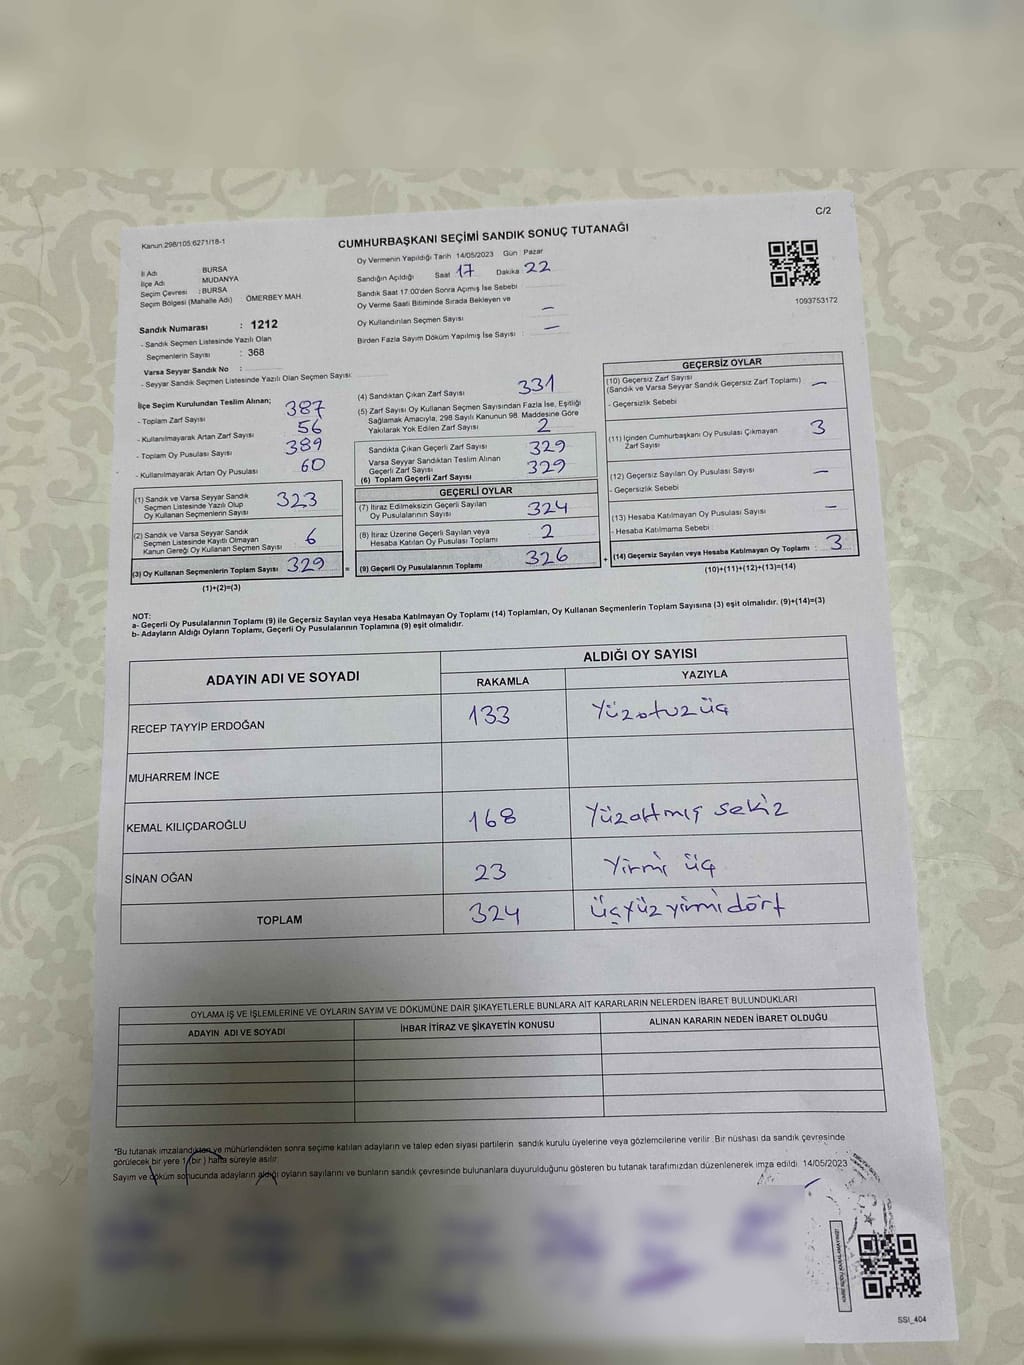 C/2
Kanun.298/105.6271/18-1
CUMHURBAŞKANI SEÇİMİ SANDIK SONUÇ TUTANAĞI
İl Adı BURSA
İlçe Adı MUDANYA
Seçim Çevresi : BURSA
Seçim Bölgesi (Mahalle Adı) ÖMERBEY MAH.
Oy Vermenin Yapıldığı Tarih 14/05/2023 Gün Pazar
Sandığın Açıldığı Saat 17 Dakika 22
Sandık Saat 17:00'den Sonra Açılmış İse Sebebi
Oy Verme Saati Bitiminde Sırada Bekleyen ve
Oy Kullandırılan Seçmen Sayısı : –
Birden Fazla Sayım Döküm Yapılmış İse Sayısı : –
1093753172
Sandık Numarası : 1212
- Sandık Seçmen Listesinde Yazılı Olan
Seçmenlerin Sayısı : 368
Varsa Seyyar Sandık No :
- Seyyar Sandık Seçmen Listesinde Yazılı Olan Seçmen Sayısı:
İlçe Seçim Kurulundan Teslim Alınan;
- Toplam Zarf Sayısı 387
- Kullanılmayarak Artan Zarf Sayısı 56
- Toplam Oy Pusulası Sayısı 389
- Kullanılmayarak Artan Oy Pusulası 60
(1) Sandık ve Varsa Seyyar Sandık
Seçmen Listesinde Yazılı Olup
Oy Kullanan Seçmenlerin Sayısı 323
(2) Sandık ve Varsa Seyyar Sandık
Seçmen Listesinde Kayıtlı Olmayan
Kanun Gereği Oy Kullanan Seçmen Sayısı 6
(3) Oy Kullanan Seçmenlerin Toplam Sayısı 329 =
(1)+(2)=(3)
(4) Sandıktan Çıkan Zarf Sayısı 331
(5) Zarf Sayısı Oy Kullanan Seçmen Sayısından Fazla İse, Eşitliği
Sağlamak Amacıyla, 298 Sayılı Kanunun 98. Maddesine Göre
Yakılarak Yok Edilen Zarf Sayısı 2
Sandıkta Çıkan Geçerli Zarf Sayısı 329
Varsa Seyyar Sandıktan Teslim Alınan
Geçerli Zarf Sayısı
(6) Toplam Geçerli Zarf Sayısı 329
GEÇERLİ OYLAR
(7) İtiraz Edilmeksizin Geçerli Sayılan
Oy Pusulalarının Sayısı 324
(8) İtiraz Üzerine Geçerli Sayılan veya
Hesaba Katılan Oy Pusulası Toplamı 2
(9) Geçerli Oy Pusulalarının Toplamı 326 +
GEÇERSİZ OYLAR
(10) Geçersiz Zarf Sayısı
(Sandık ve Varsa Seyyar Sandık Geçersiz Zarf Toplamı) –
- Geçersizlik Sebebi
(11) İçinden Cumhurbaşkanı Oy Pusulası Çıkmayan
Zarf Sayısı 3
(12) Geçersiz Sayılan Oy Pusulası Sayısı –
- Geçersizlik Sebebi
(13) Hesaba Katılmayan Oy Pusulası Sayısı –
- Hesaba Katılmama Sebebi :
(14) Geçersiz Sayılan veya Hesaba Katılmayan Oy Toplamı : 3
(10)+(11)+(12)+(13)=(14)
NOT:
a- Geçerli Oy Pusulalarının Toplamı (9) ile Geçersiz Sayılan veya Hesaba Katılmayan Oy Toplamı (14) Toplamları, Oy Kullanan Seçmenlerin Toplam Sayısına (3) eşit olmalıdır. (9)+(14)=(3)
b- Adayların Aldığı Oyların Toplamı, Geçerli Oy Pusulalarının Toplamına (9) eşit olmalıdır.
ADAYIN ADI VE SOYADI
ALDIĞI OY SAYISI
RAKAMLA YAZIYLA
RECEP TAYYİP ERDOĞAN 133 Yüzotuzüç
MUHARREM İNCE
KEMAL KILIÇDAROĞLU 168 Yüzaltmış sekiz
SİNAN OĞAN 23 Yirmi üç
TOPLAM 324 üçyüz yirmidört
OYLAMA İŞ VE İŞLEMLERİNE VE OYLARIN SAYIM VE DÖKÜMÜNE DAİR ŞİKAYETLERLE BUNLARA AİT KARARLARIN NELERDEN İBARET BULUNDUKLARI
ADAYIN ADI VE SOYADI İHBAR İTİRAZ VE ŞİKAYETİN KONUSU ALINAN KARARIN NEDEN İBARET OLDUĞU
*Bu tutanak imzalandıkten ve mühürlendikten sonra seçime katılan adayların ve talep eden siyasi partilerin sandık kurulu üyelerine veya gözlemcilerine verilir. Bir nüshası da sandık çevresinde
görülecek bir yere 1 (bir) hafta süreyle asılır.
Sayım ve döküm sonucunda adayların aldığı oyların sayılarını ve bunların sandık çevresinde bulunanlara duyurulduğunu gösteren bu tutanak tarafımızdan düzenlenerek imza edildi. 14/05/2023
SSI_404